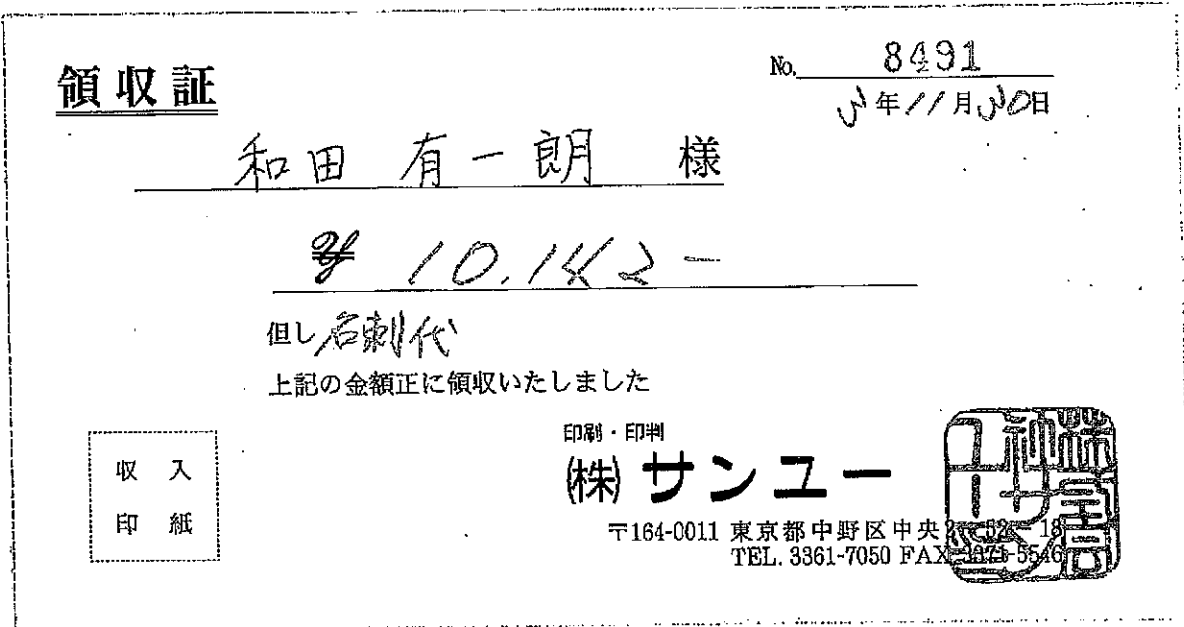 領収証
No. 8491
3年11月30日
和田 有一朗 様
¥ 10.142-
但し 名刺代
上記の金額正に領収いたしました
収入
印紙
印刷・印判
(株) サンユー
〒164-0011 東京都中野区中央
TEL. 3361-7050 FAX 3371-5546